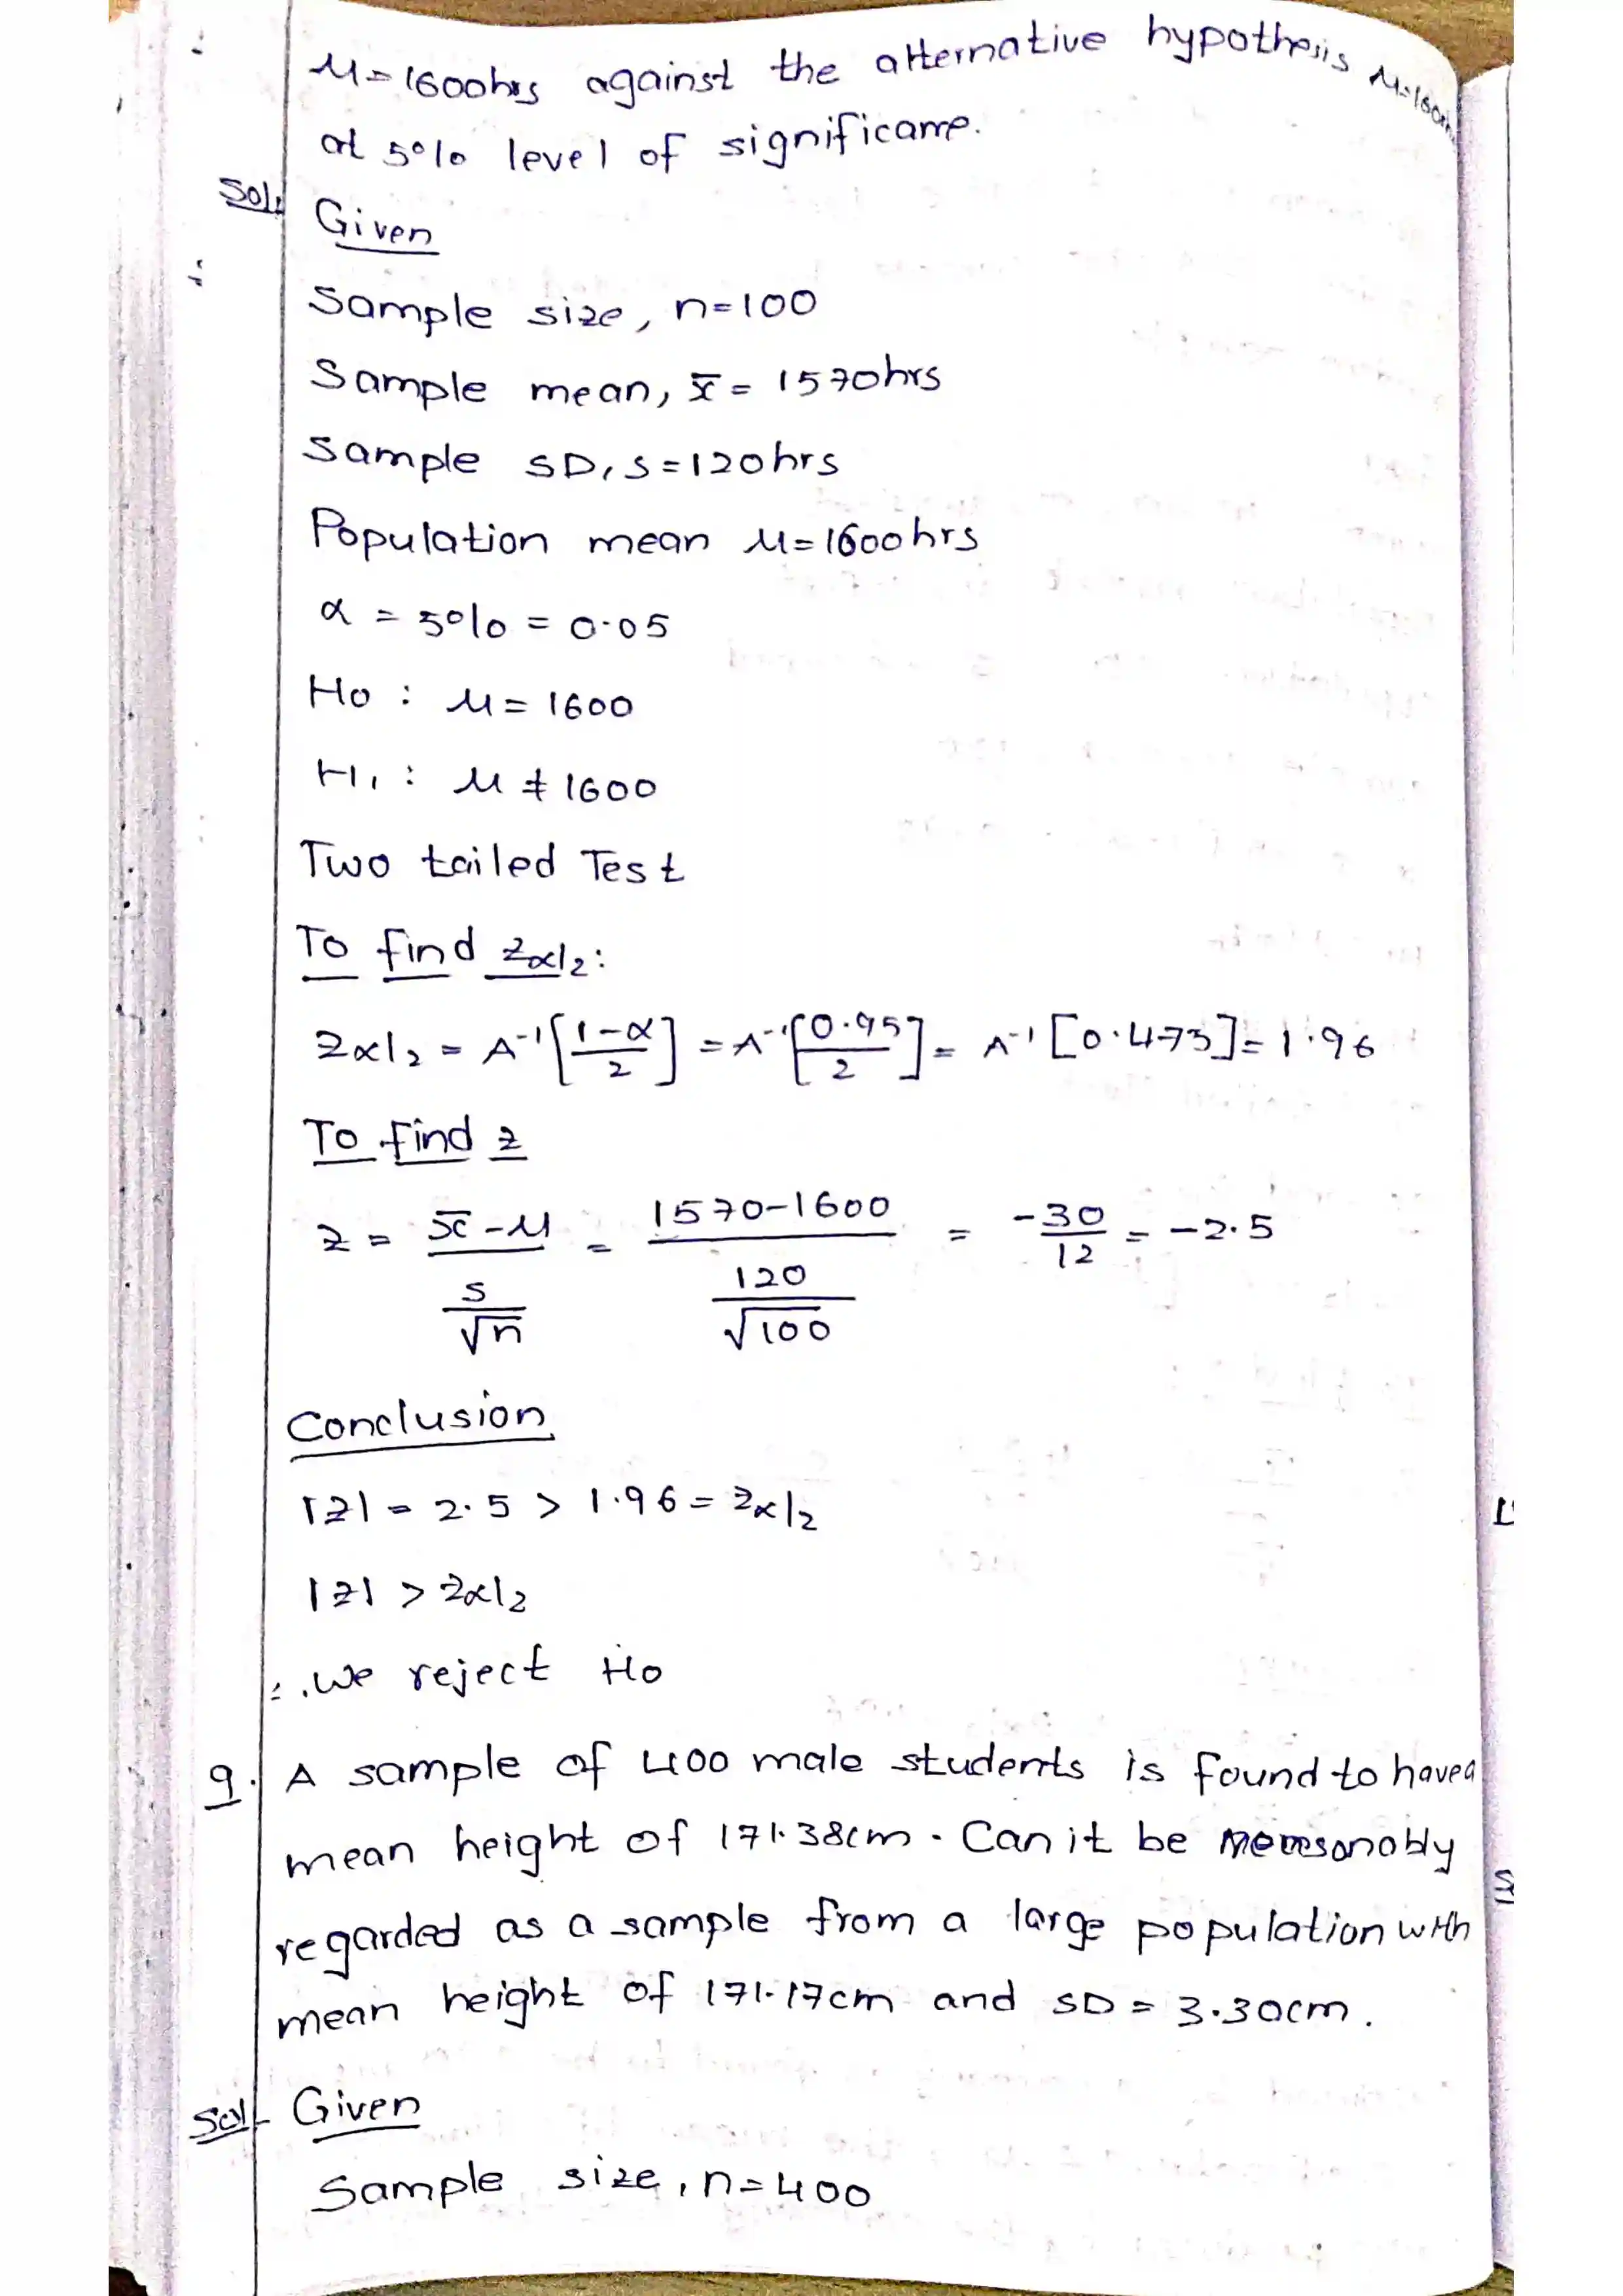 μ=1600hrs against the alternative hypothesis
at 5% level of significance.
Sol:
Given
Sample size, n=100
Sample mean, x̄ = 1570hrs
Sample SD, S=120hrs
Population mean μ=1600hrs
α = 5% = 0.05
H0 : μ = 1600
H1 : μ ≠ 1600
Two tailed Test
To find zα/2:
zα/2 = A⁻¹[(1-α)/2] = A⁻¹[0.95/2] = A⁻¹[0.475] = 1.96
To find z
z = (x̄-μ)/(s/√n) = (1570-1600)/(120/√100) = -30/12 = -2.5
Conclusion
|z| = 2.5 > 1.96 = zα/2
|z| > zα/2
∴ We reject H0
9. A sample of 400 male students is found to have a
mean height of 171.38cm. Can it be
regarded as a sample from a large population with
mean height of 171.17cm and SD = 3.30cm.
Sol
Given
Sample size, n=400